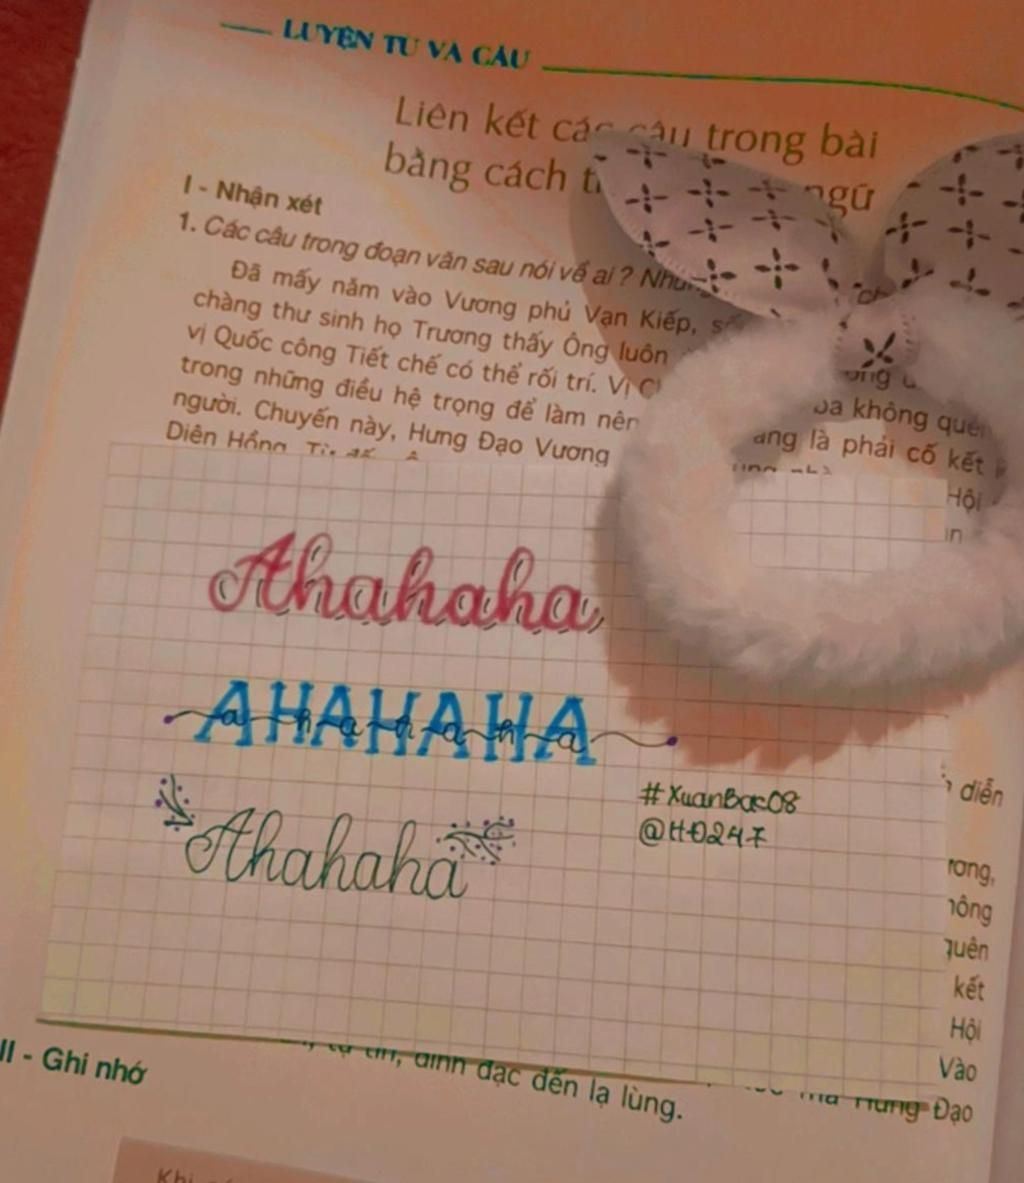 LUYỆN TỪ VÀ CÂU
Liên kết các câu trong bài
bằng cách ngữ
I - Nhận xét
1. Các câu trong đoạn văn sau nói về ai ?
Đã mấy năm vào Vương phủ Vạn Kiếp,
chàng thư sinh họ Trương thấy Ông luôn
vị Quốc công Tiết chế có thể rối trí. Vị
trong những điều hệ trọng để làm nên không
người. Chuyến này, Hưng Đạo Vương là phải cố kết
Diên Hồng. Hội
Ahahaha
AHAHAHA
ahahaha
Ahahaha
#XuanBac08
@HĐ247
diễn
quên
kết
Hội
Vào
đĩnh đạc đến lạ lùng. Hưng Đạo
II - Ghi nhớ